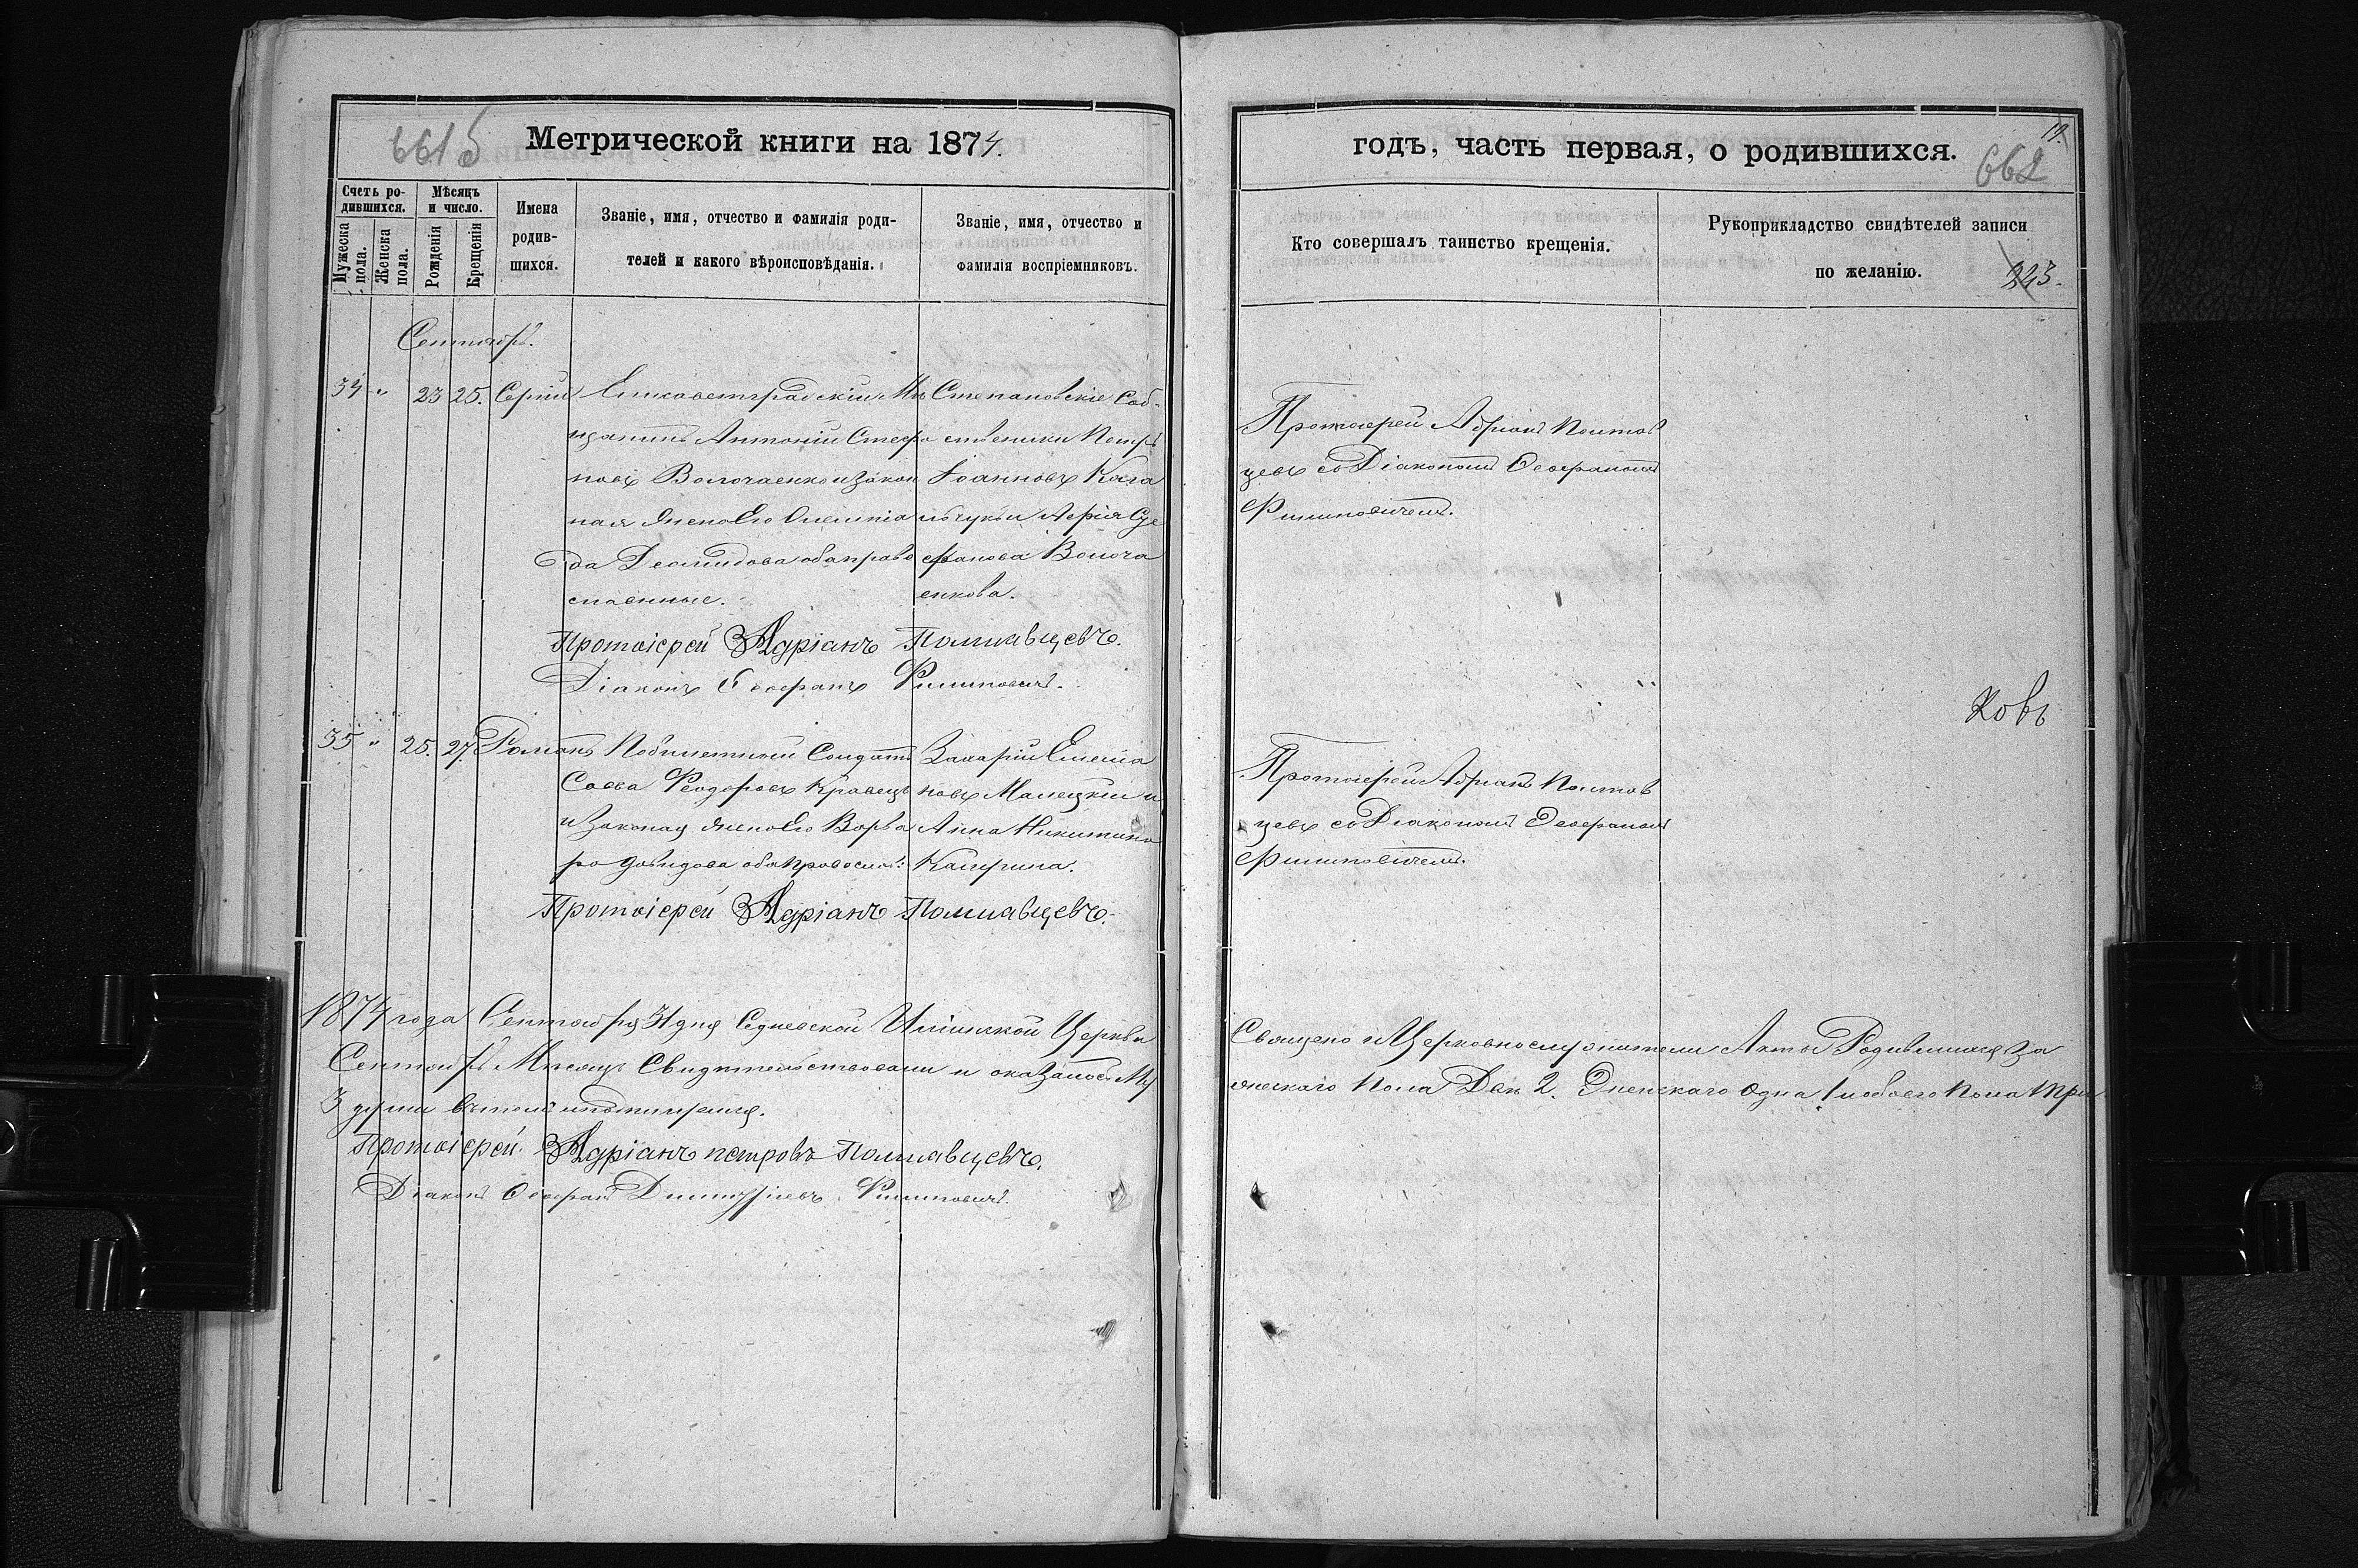 661б
Метрической книги на 1874.
Счетъ ро-
дившихся.
Мѣсяцъ
и число.
Мужеска
пола.
Женска
пола.
Рожденія
Крещенія
Имена
родив-
шихся.
Званіе, имя, отчество и фамилія роди-
телей и какого вѣроисповѣданія.
Званіе, имя, отчество и
фамилія воспріемниковъ.
Сентябрь.
34 " 23 25. Сергій
Елисаветградскій Мѣ
щанинъ Антоній Стефа
новъ Волочаенко и закон
ная жена Его Олимпіа
да Деомидова оба право
славные.
Степановскіе Соб-
ственики Петръ
Іоанновъ Кага
и Сте
фанова Волоча
енкова.
Протоіерей Адріанъ Полтавцевъ.
Діаконъ Филиповичъ.
35 " 25. 27. Романъ
Побилетный Солдатъ
Савва Феодоровъ Кравецъ
и законая жена Его Варва
ра Давидова оба православ:
Захарій Емелiа
новъ Малецкій и
Анна Никитина
Катрича.
Протоіерей Адріанъ Полтавцевъ.
1874 года Сентября 31 дня Седневской Церкви
Сентябрь Мѣсяцъ Свидѣтельствовали и оказалось Му
3 души
Протоіерей Адріанъ Петровъ Полтавцевъ.
Діаконъ Димитріевъ Филиповичъ.
годъ, часть первая, о родившихся.
19.
662
Кто совершалъ таинство крещенія.
Рукоприкладство свидѣтелей записи
по желанію.
243.
Протоіерей Адріанъ Полтав
цевъ съ Діакономъ
Филиповичемъ.
ковъ
Протоіерей Адріанъ Полтав
цевъ съ Діакономъ
Филиповичемъ.
Священо и Церковнослужители Акты Родившихся За
жескаго Пола Два 2. Женскаго Одна 1 и обоего Пола Три